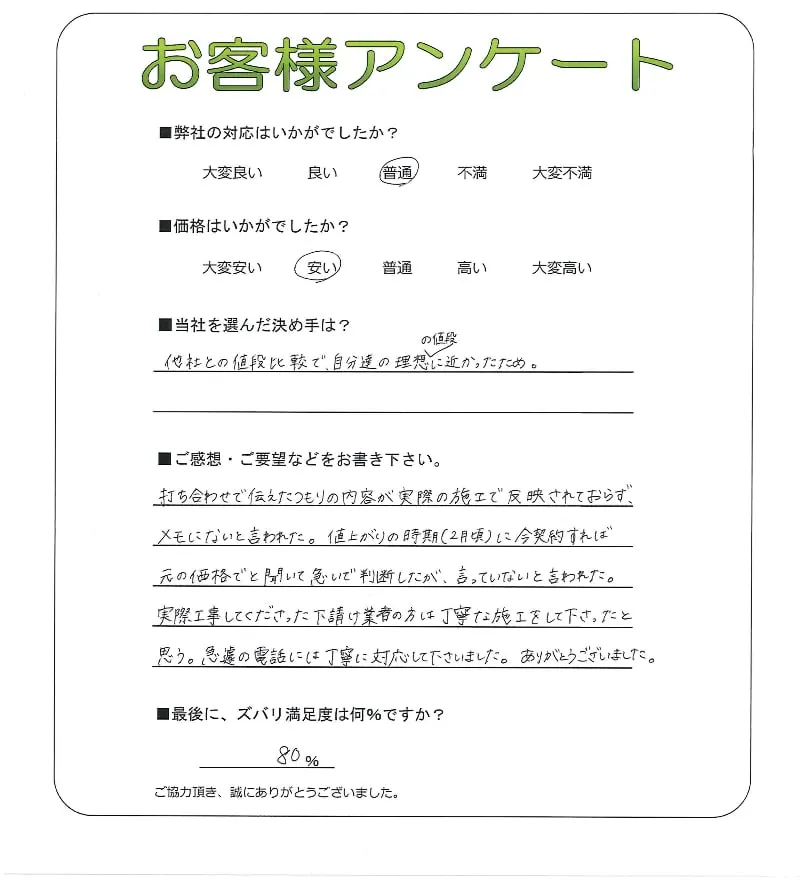 お客様アンケート
■弊社の対応はいかがでしたか？
大変良い 良い 普通 不満 大変不満
■価格はいかがでしたか？
大変安い 安い 普通 高い 大変高い
■当社を選んだ決め手は？
の値段
他社との値段比較で、自分達の理想に近かったため。
■ご感想・ご要望などをお書き下さい。
打ち合わせで伝えたつもりの内容が実際の施工で反映されておらず、
メモにないと言われた。値上がりの時期(2月頃)に今契約すれば
元の価格でと聞いて急いで判断したが、言っていないと言われた。
実際工事してくださった下請け業者の方は丁寧な施工をして下さったと
思う。急遽の電話には丁寧に対応して下さいました。ありがとうございました。
■最後に、ズバリ満足度は何%ですか？
80%
ご協力頂き、誠にありがとうございました。